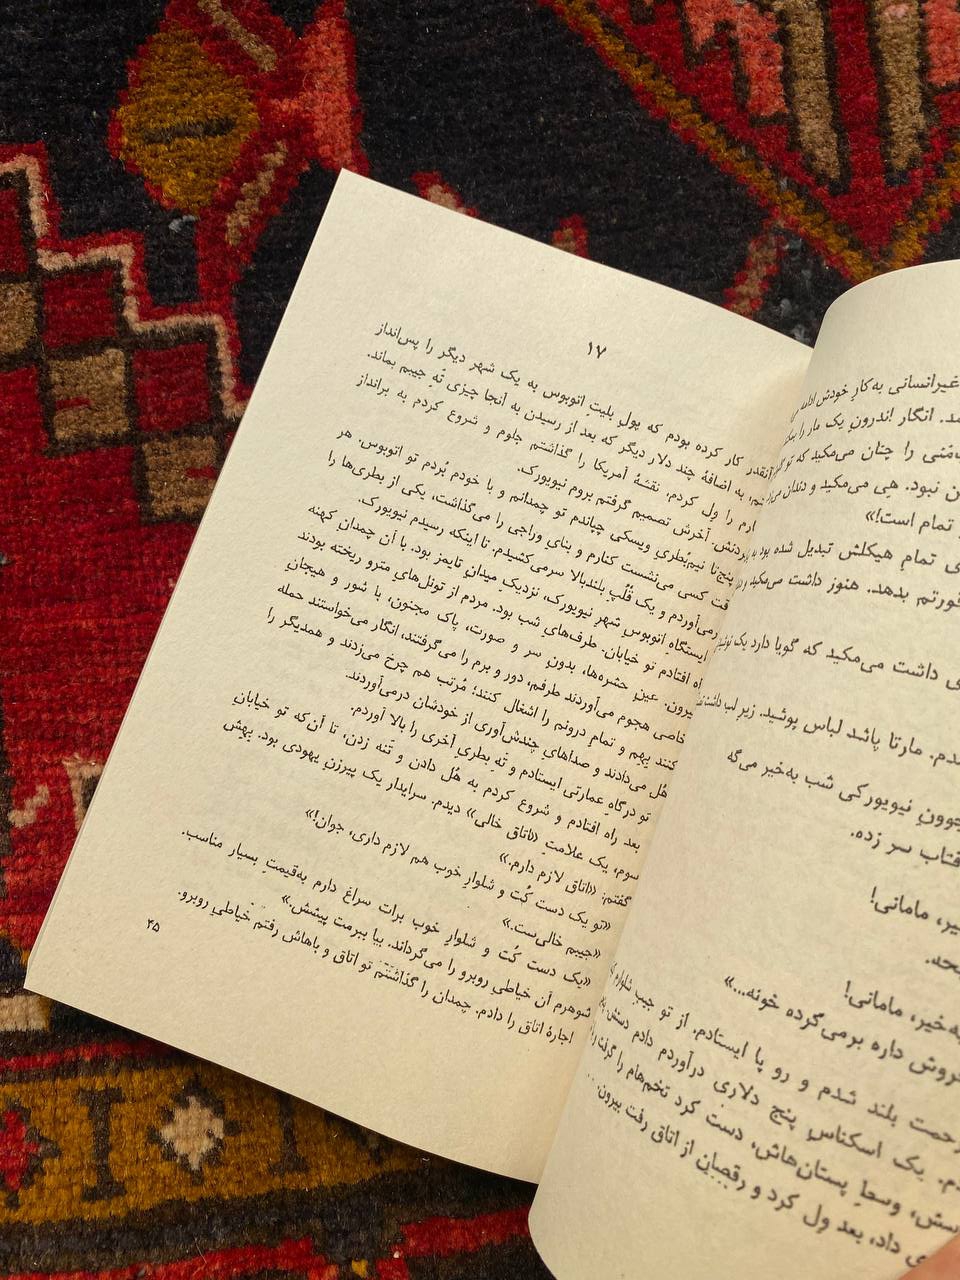 غیرانسانی به‌کارِ خودش ادامه
مد. انگار اندرونِ یک مار را
مَنی را چنان می‌مکید که تو
ن نبود. هِی می‌مکید و دندان
تمام است!»
ی تمام هیکلش تبدیل شده بود به
خورتم بدهد. هنوز داشت می‌مکید و
ی داشت می‌مکید که گویا دارد یک
دم. مارتا پاشد لباس پوشید. زیرِ لب داشت
جوونِ نیویورکی شب به‌خیر می‌گه
فتاب سر زده.
یر، مامانی!
به‌خیر، مامانی!
فروش داره برمی‌گرده خونه...»
زحمت بلند شدم و رو پا ایستادم. از تو جیبِ شلوارم
م. یک اسکناسِ پنج دلاری درآوردم دادم دستش
ستش، وسطِ پستان‌هاش، دست کرد تخم‌هام را گرفت
ی داد، بعد ول کرد و رقصان از اتاق رفت بیرون.
۱۷
آنقدر کار کرده بودم که پولِ بلیتِ اتوبوس به یک شهر دیگر را پس‌انداز
کنم، به اضافهٔ چند دلار دیگر که بعد از رسیدن به آنجا چیزی تَهِ جیبم بماند.
کارم را ول کردم. نقشهٔ آمریکا را گذاشتم جلوم و شروع کردم به برانداز
کردنش. آخرش تصمیم گرفتم بروم نیویورک.
پنج‌تا نیم‌بُطریِ ویسکی چپاندم تو چمدانم و با خودم بُردم تو اتوبوس. هر
وقت کسی می‌نشست کنارم و بنای وراجی را می‌گذاشت، یکی از بطری‌ها را
درمی‌آوردم و یک قُلُپِ بلندبالا سرمی‌کشیدم. تا اینکه رسیدم نیویورک.
ایستگاهِ اتوبوس شهر نیویورک، نزدیکِ میدانِ تایمز بود. با آن چمدانِ کهنه
راه افتادم تو خیابان. طرف‌هایِ شب بود. مردم از تونل‌هایِ مترو ریخته بودند
بیرون. عینِ حشره‌ها، بدونِ سر و صورت، پاک مجنون، با شور و هیجانِ
خاصی هجوم می‌آوردند طرفم، دور و برم را می‌گرفتند، انگار می‌خواستند حمله
کنند بِهِم و تمامِ درونم را اشغال کنند؛ مُرتب هم چرخ می‌زدند و همدیگر را
هُل می‌دادند و صداهایِ چندش‌آوری از خودشان درمی‌آوردند.
تو درگاهِ عمارتی ایستادم و تَهِ بطریِ آخری را بالا آوردم.
بعد راه افتادم و شروع کردم به هُل دادن و تَنه زدن، تا آن‌که تو خیابانِ
سوم، یک علامتِ «اتاق خالی» دیدم. سرایدار یک پیرزنِ یهودی بود. بِهِش
گفتم: «اتاق لازم دارم.»
«تو یک دست کُت و شلوارِ خوب هم لازم داری، جوان!»
«جیبم خالی‌ست.»
«یک دست کُت و شلوار خوب برات سراغ دارم به‌قیمتِ بسیار مناسب.
شوهرم آن خیاطیِ روبرو را می‌گرداند. بیا ببرمت پیشش.»
اجارهٔ اتاق را دادم. چمدان را گذاشتم تو اتاق و باهاش رفتم خیاطیِ روبرو.
۴۵